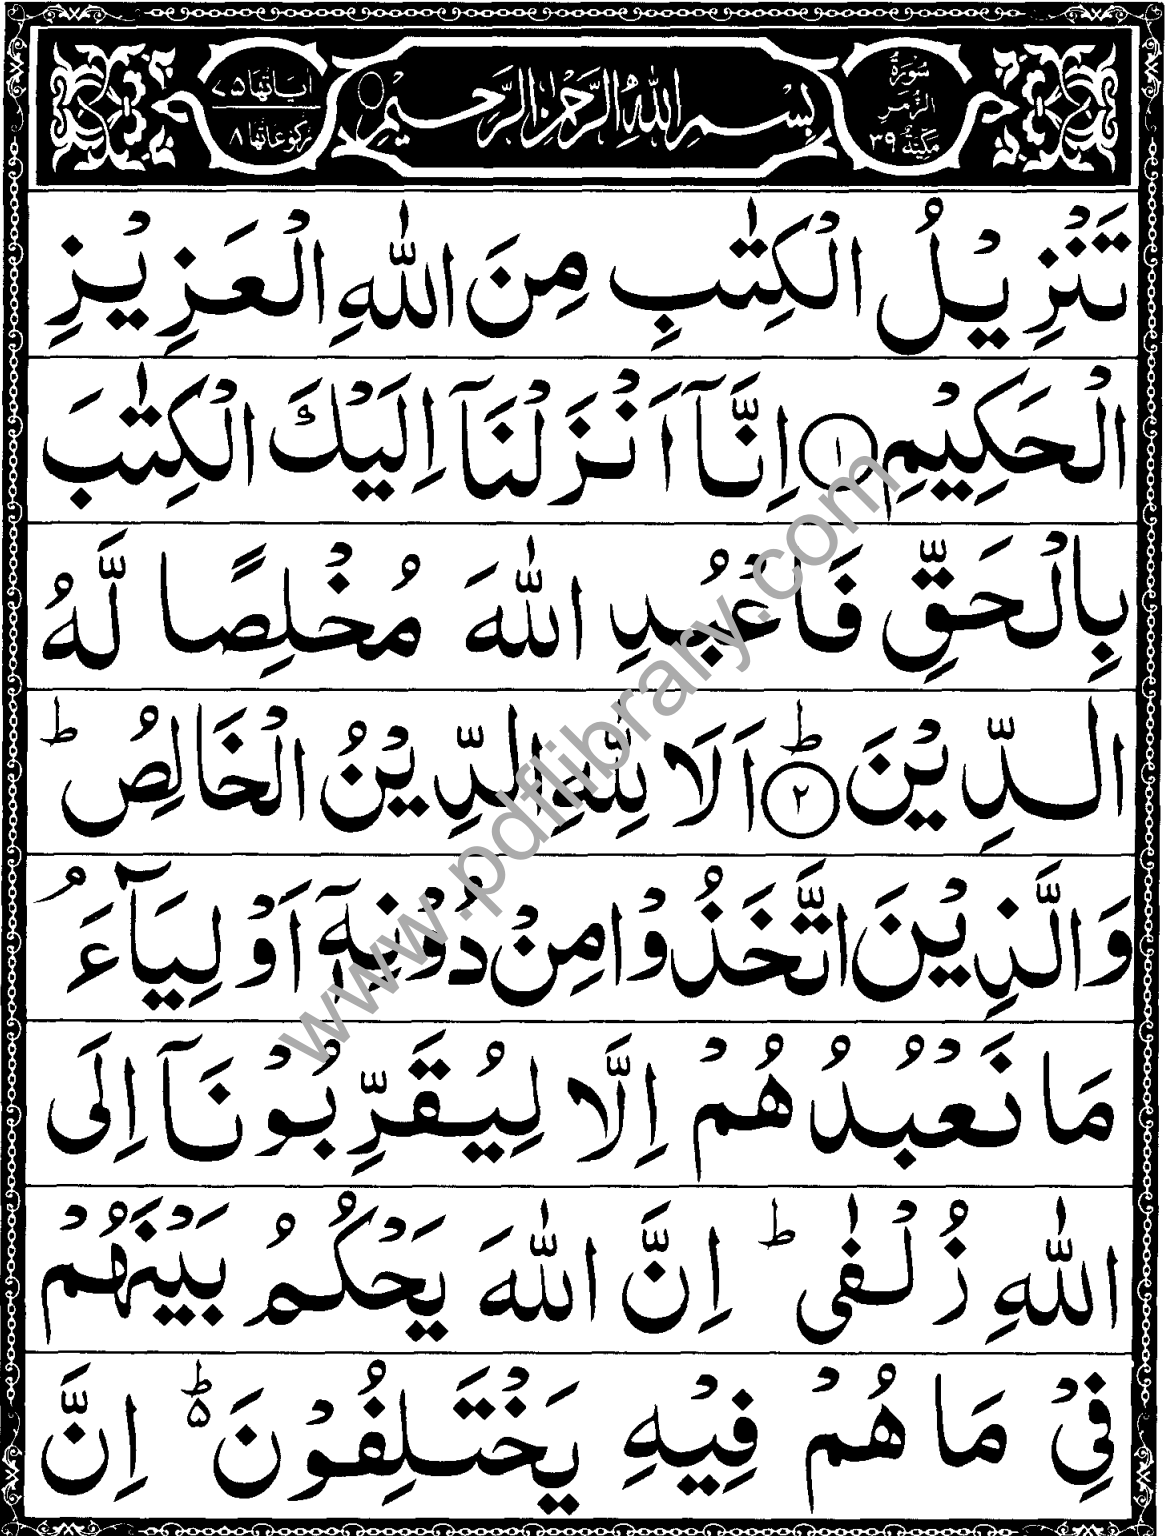 سُوْرَةُ
الزُّمَرِ
مَكِّيَّةٌ ٣٩
بِسْمِ اللّٰهِ الرَّحْمٰنِ الرَّحِيْمِ
اٰيَاتُهَا ٧٥
رُكُوْعَاتُهَا ٨
تَنْزِيْلُ الْكِتٰبِ مِنَ اللّٰهِ الْعَزِيْزِ
الْحَكِيْمِ ١ اِنَّآ اَنْزَلْنَآ اِلَيْكَ الْكِتٰبَ
بِالْحَقِّ فَاعْبُدِ اللّٰهَ مُخْلِصًا لَّهُ
الدِّيْنَ ؕ ٢ اَلَا لِلّٰهِ الدِّيْنُ الْخَالِصُ ؕ
وَالَّذِيْنَ اتَّخَذُوْا مِنْ دُوْنِهٖٓ اَوْلِيَآءَ ۘ
مَا نَعْبُدُهُمْ اِلَّا لِيُقَرِّبُوْنَآ اِلَى
اللّٰهِ زُلْفٰى ؕ اِنَّ اللّٰهَ يَحْكُمُ بَيْنَهُمْ
فِيْ مَا هُمْ فِيْهِ يَخْتَلِفُوْنَ ؕ۵ اِنَّ
www.pdflibrary.com